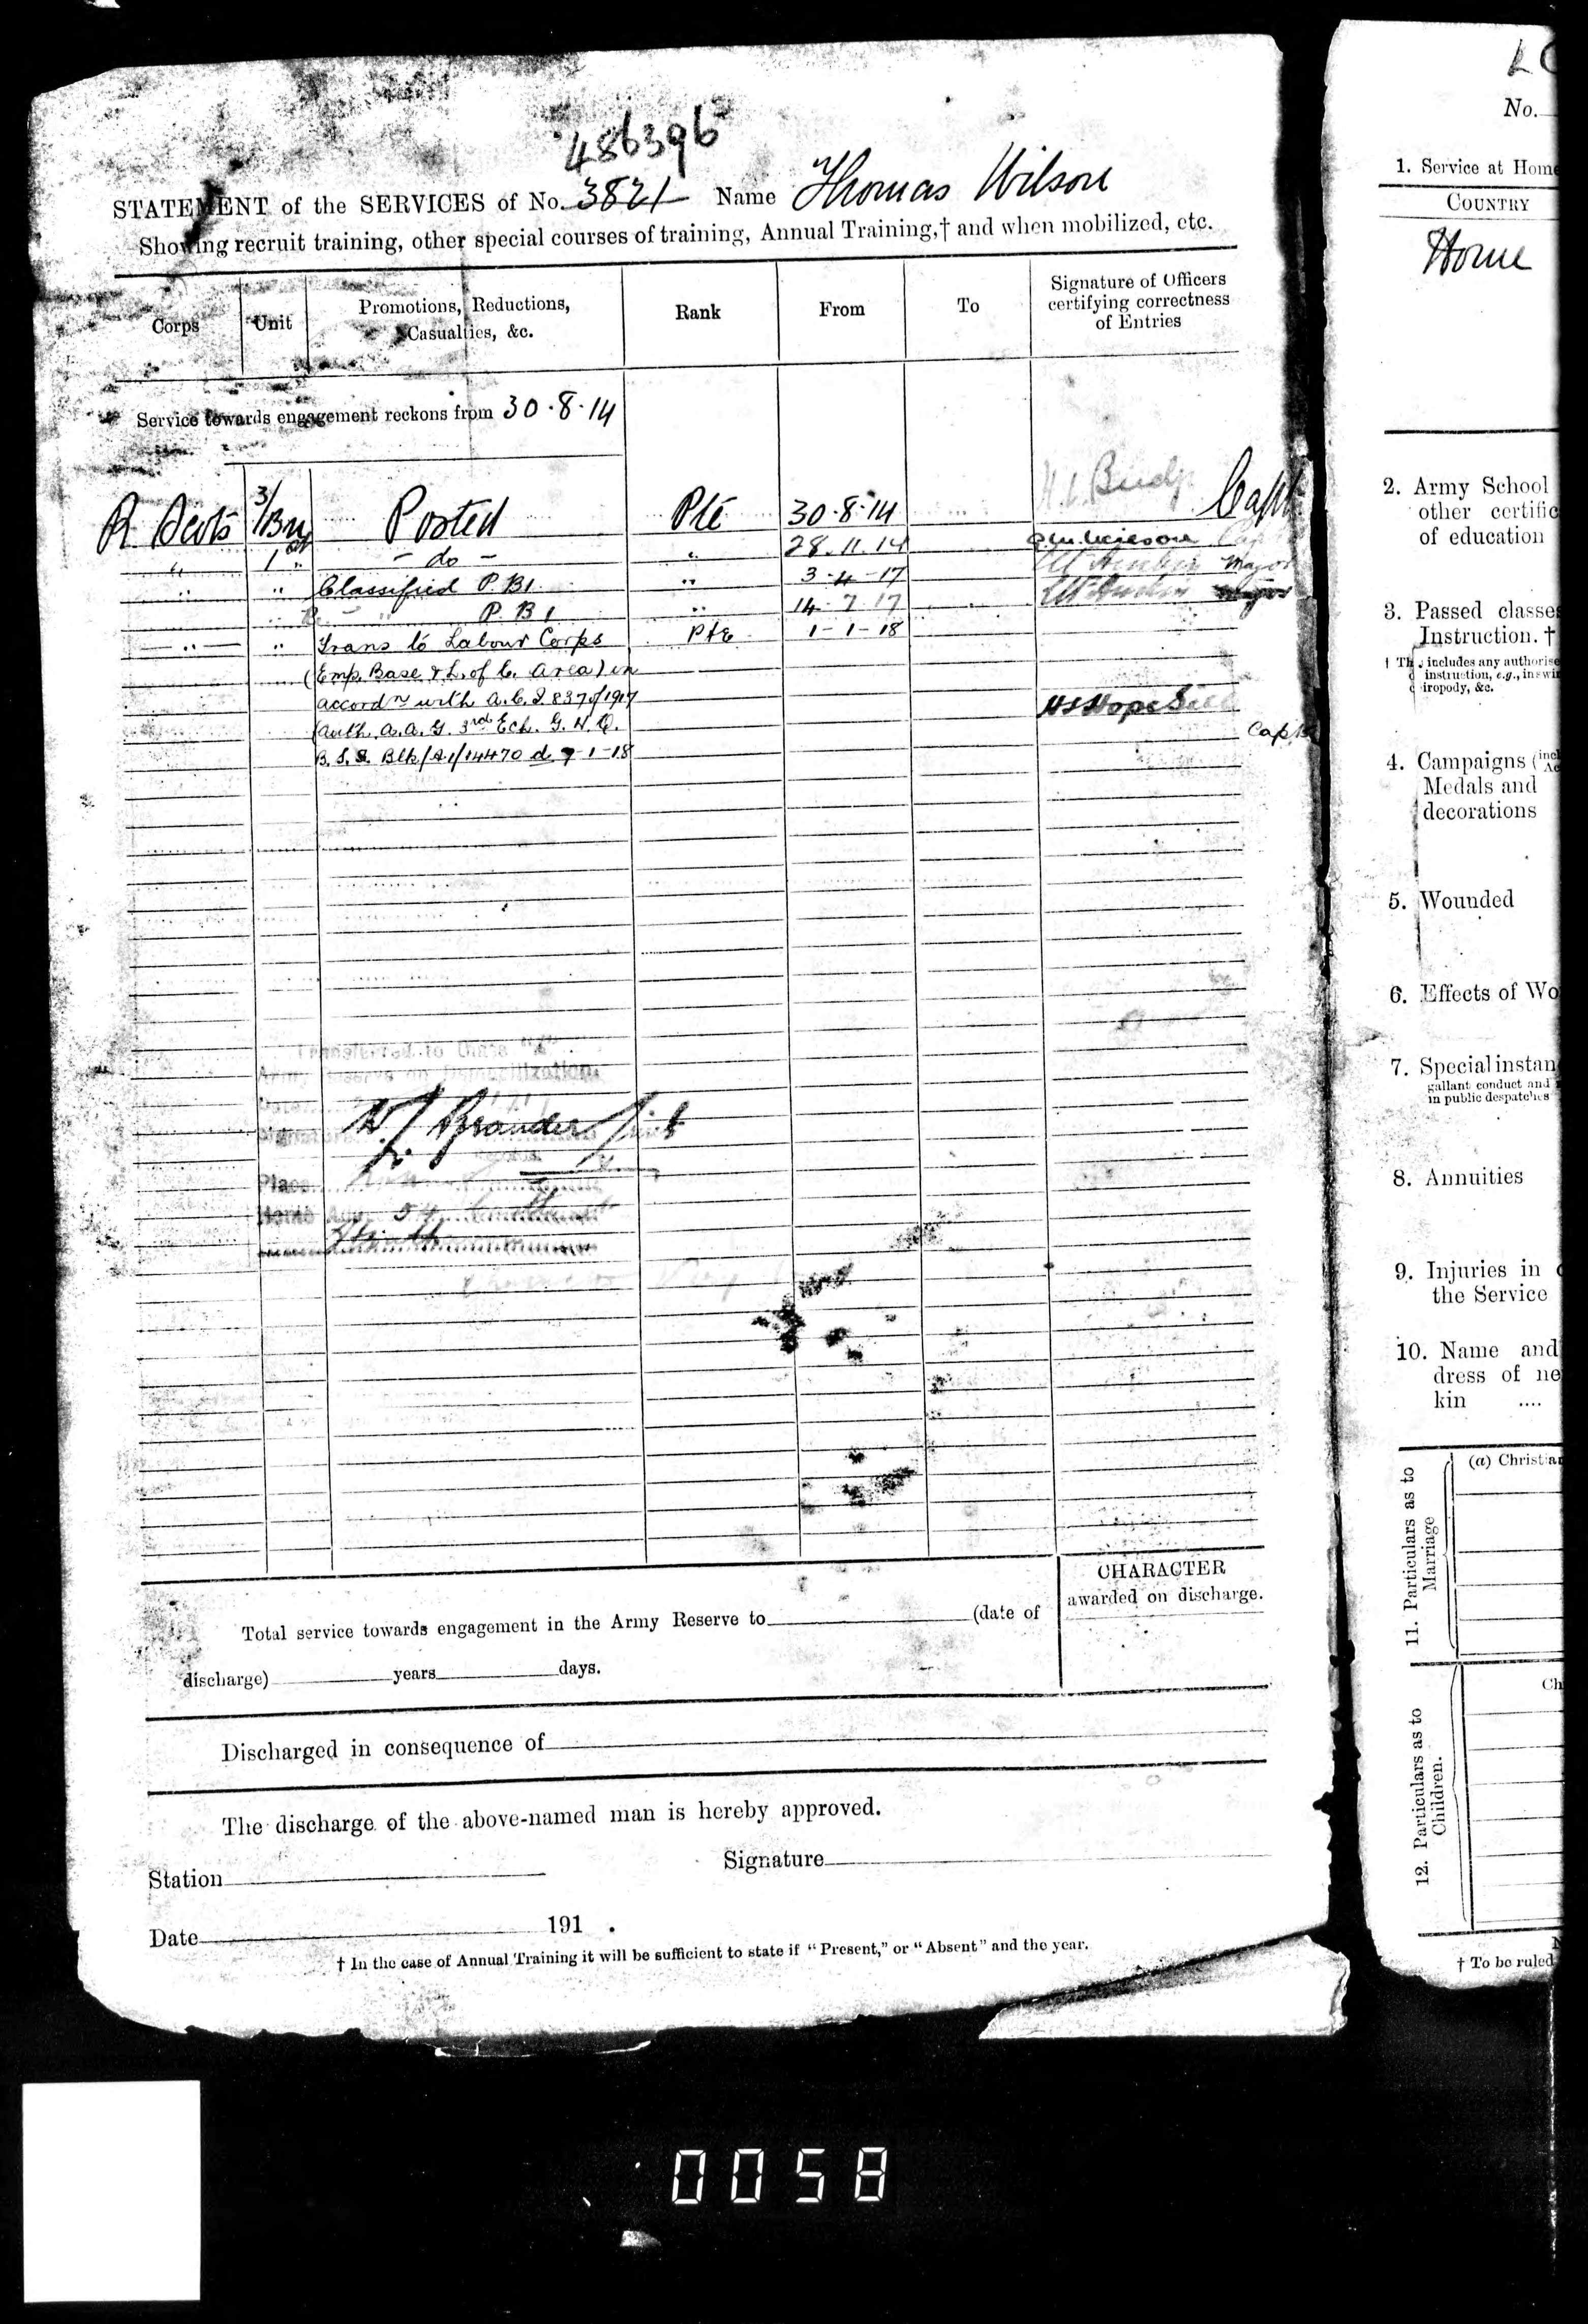 486396
STATEMENT of the SERVICES of No. 3821 Name Thomas Wilson
Showing recruit training, other special courses of training, Annual Training,† and when mobilized, etc.
Corps Unit Promotions, Reductions, Casualties, &c. Rank From To Signature of Officers certifying correctness of Entries
Service towards engagement reckons from 30·8·14
R Scots 3/Bn Posted Pte 30·8·14 Capt
" 1st " - do - " 28.11.14
" " Classified P.B1. " 3-4-17 Major
" " P.B1 " 14-7-17 Major
" " Trans to Labour Corps Pte 1-1-18
(Emp. Base & L. of C. Area) in
accordn with A.C.I. 837 of 1917
(Auth. A.A.G. 3rd Ech. G.H.Q.
B.S.S. Blk/A1/14470 d. 7-1-18
Capt
Transferred to Class "Z"
Army Reserve on Demobilization.
Date
Signature
Place
Total service towards engagement in the Army Reserve to (date of
discharge) years days.
CHARACTER
awarded on discharge.
Discharged in consequence of
The discharge of the above-named man is hereby approved.
Station Signature
Date 191 .
† In the case of Annual Training it will be sufficient to state if "Present," or "Absent" and the year.
No.
1. Service at Home
COUNTRY
Home
2. Army School
other
of education
3. Passed classes
Instruction. †
includes any
instruction, e.g.,
&c.
4. Campaigns
Medals and
decorations
5. Wounded
6. Effects of
7. Special
gallant conduct and
in public despatches
8. Annuities
9. Injuries in
the Service
10. Name and
dress of
kin ....
11. Particulars as to
Marriage
(a)
12. Particulars as to
Children.
† To be ruled
0058